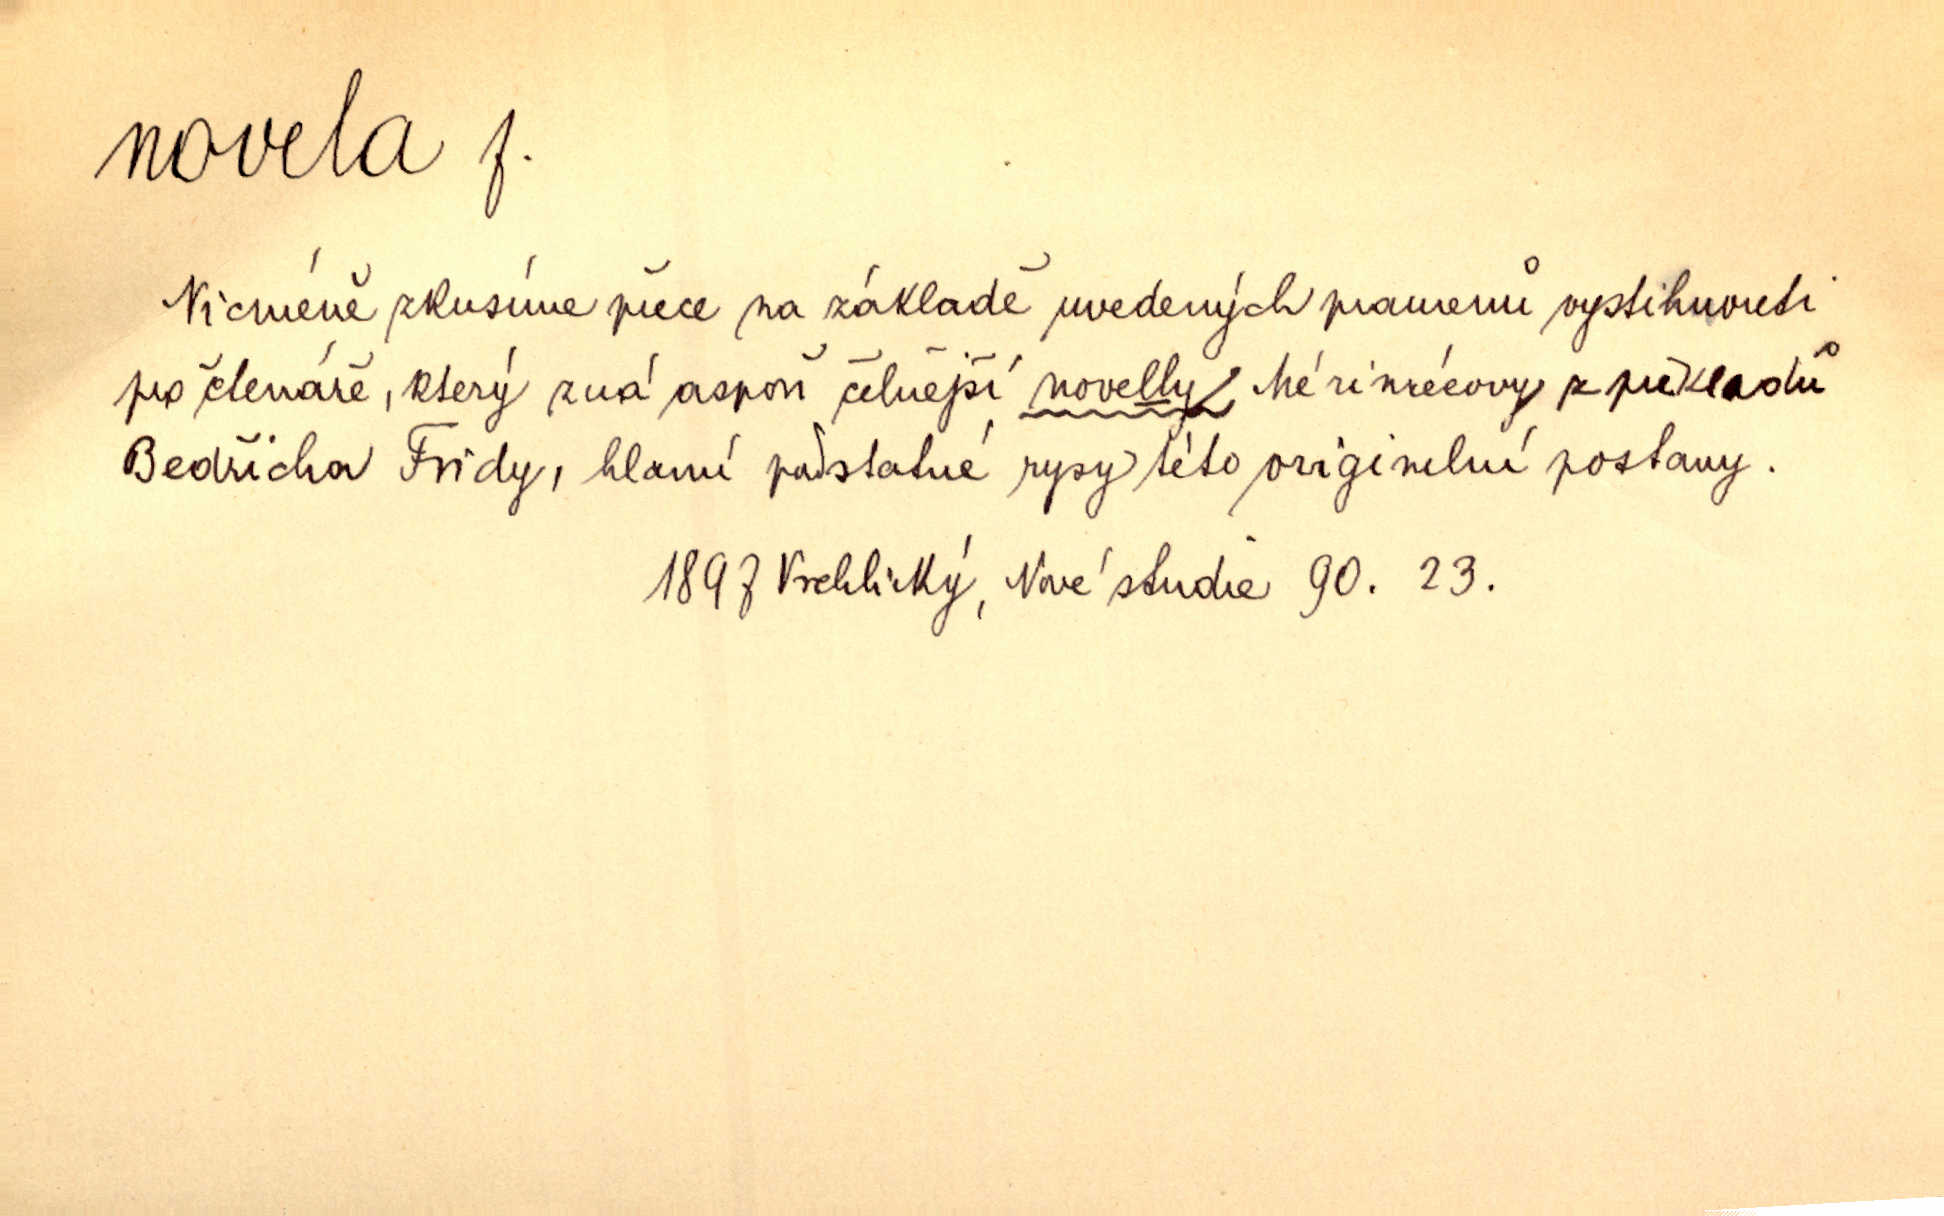 novela f.
Nicméně zkusíme přece na základě uvedených pramenů vystihnouti
pro čtenáře, který zná aspoň čelnější novelly Mériméeovy z překladů
Bedřicha Frídy, hlavní podstatné rysy této originelní postavy.
1897 Vrchlický, Nové studie 90. 23.